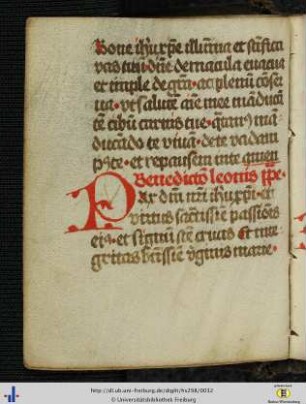 Bone ihũ xp̃e illumina et sc̃ifica
vas tuũ · dñe de macula euacua
et imple de gr̃a · ac plenũ cõser
ua · vt salutẽ aĩe mee māducā
te cibũ carnis tue · māā
ducando te viuā · de te vadam
et repausem in te amen
Benedictõ leonis pp̃e ·
Pax dñi nr̃i ihũ xp̃i · et
virtus sacratissiẽ passiõis
eiꝰ · et signũ sc̃e crucis et inte
gritas bt̃issiẽ v̾ginis marie ·
http://dl.ub.uni-freiburg.de/diglit/hs258/0032
© Universitätsbibliothek Freiburg